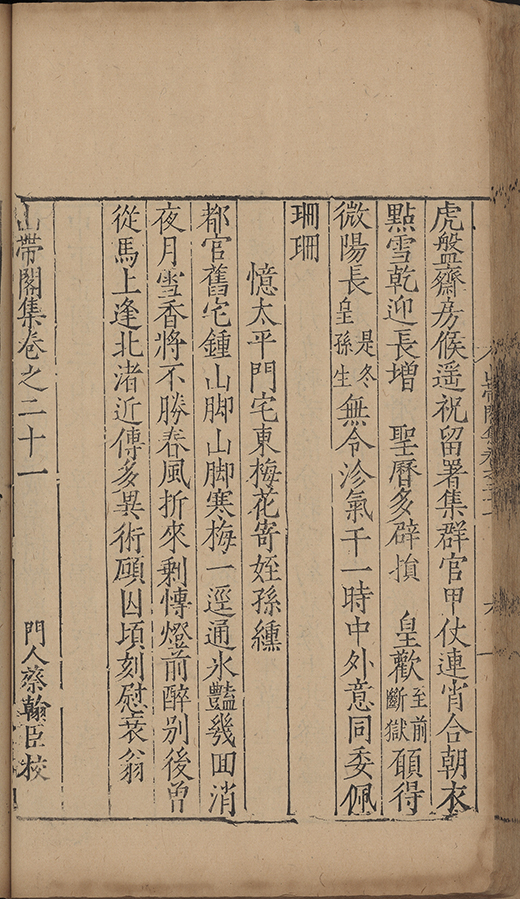 虎盤齋房候遥祝留署集群官甲仗連宵合朝衣
點雪乾迎長增　聖曆多辟損　皇歡至前斷獄願得
微陽長是冬皇孫生無令沴氣干一時中外意同委佩
珊珊
憶太平門宅東梅花寄姪孫纁
都官舊宅鍾山脚山脚寒梅一逕通氷豔幾回消
夜月雪香將不勝春風折來剩慱燈前醉别後曾
從馬上逢北渚近傳多異術願囚頃刻慰衰翁
山帶閣集卷之二十一
門人蔡翰臣校